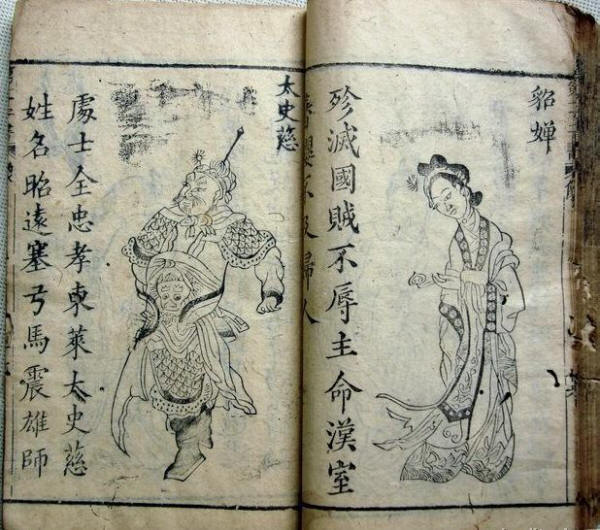 貂蟬
殄滅國賊不辱主命漢室
不及婦人
太史慈
處士全忠孝東萊太史慈
姓名昭遠塞弓馬震雄師